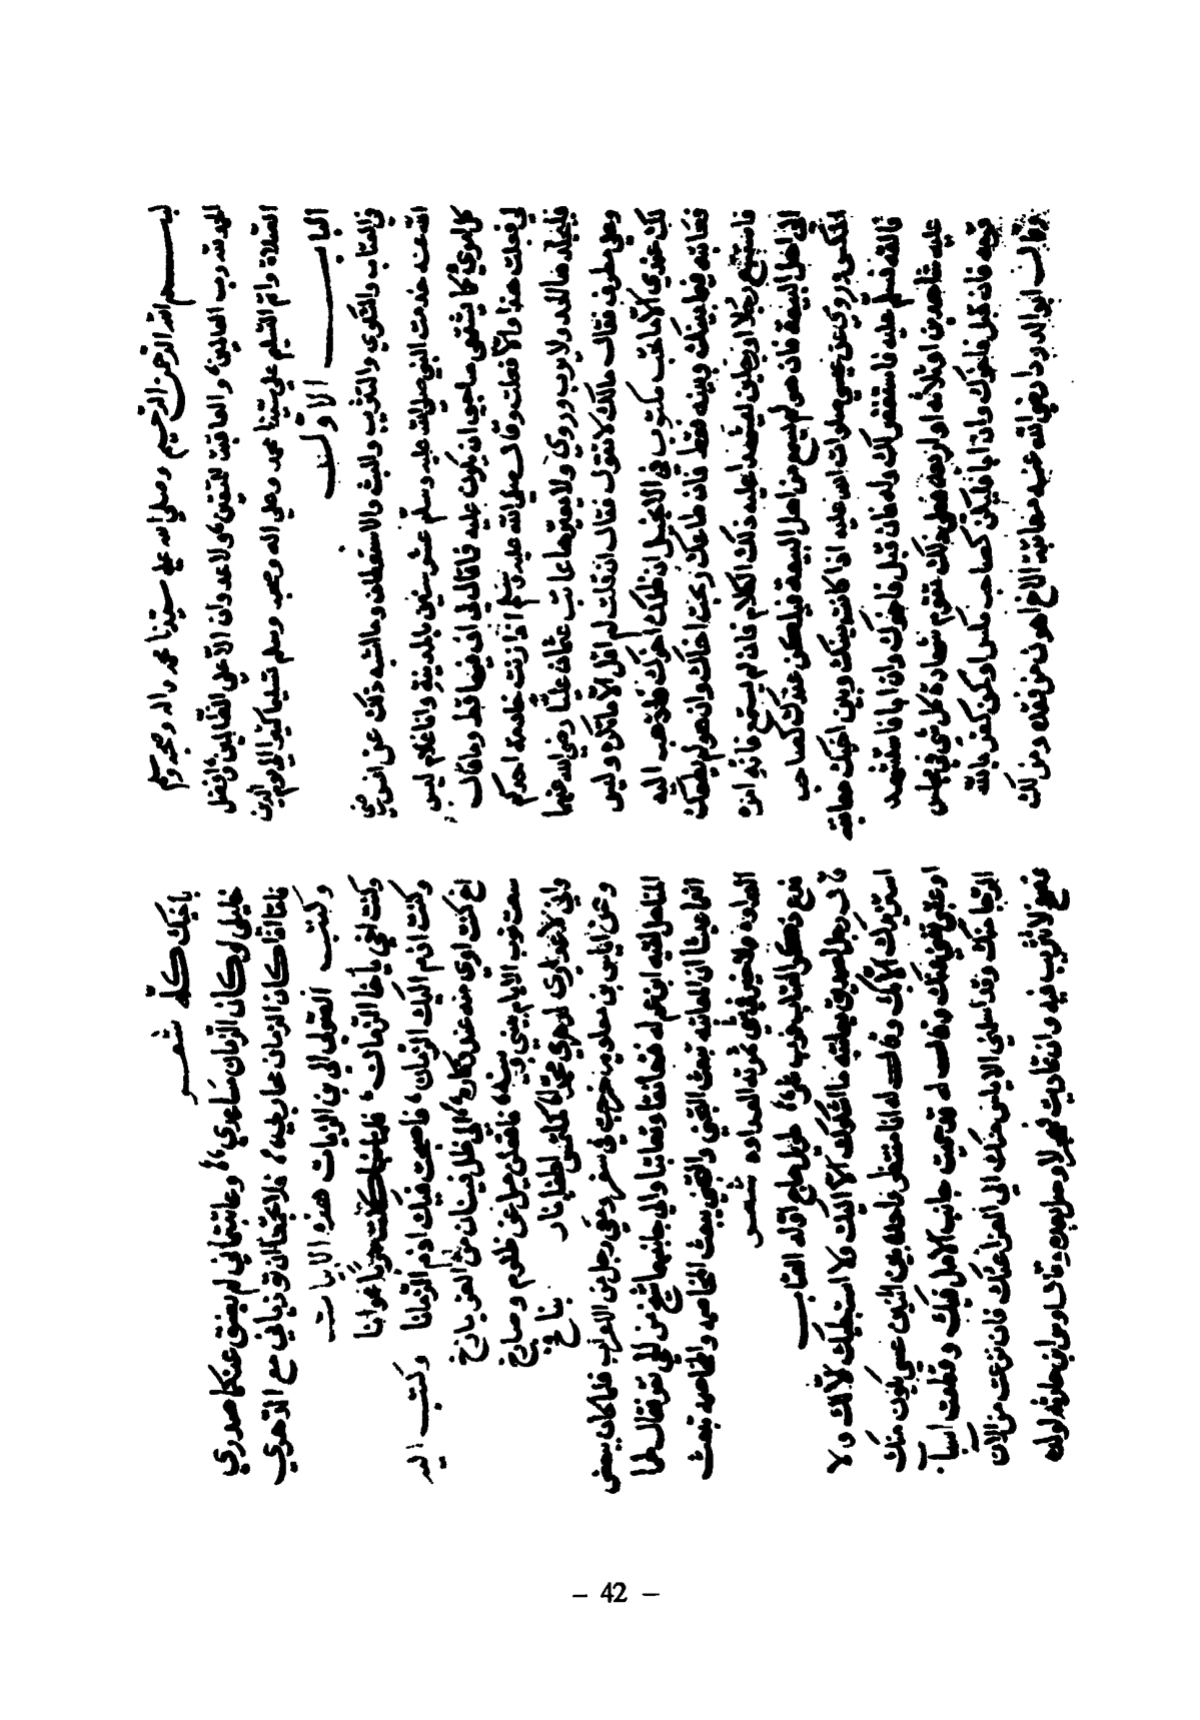 بسم الله الرحمن الرحيم وصلى الله على سيدنا محمد واله وصحبه وسلم
الحمد لله رب العالمين والعاقبة للمتقين ولا عدوان الا على الظالمين وافضل
الصلاة واتم التسليم على سيدنا محمد وعلى اله وصحبه وسلم تسليما كثيرا الى يوم الدين
الباب الاول
في العتاب والشكوي والتثريب والبث والاستعطاف وما اشبه ذلك عن انس رضي
الله عنه خدمت النبي صلى الله عليه وسلم عشر سنين بالمدينة وانا غلام ليس
كل امري كما يشتهي صاحبي ان يكون عليه فما قال لي اف فيها قط وما قال
لي لم فعلت هذا والا فعلت وقال صلى الله عليه وسلم اذا زنت خادمة احدكم
فليجلدها الحد ولا يثرب وروي ولا يعيرها عاتب عثمان عليا رضي الله عنهما
وعلي مطرق فقال مالك لا تقول فقال ان قلت لم اقل الا ما تكره وليس
لك عندي الا ما تحب مكتوب في الانجيل ان ظلمك اخوك فاذهب اليه
فعاتبه فيما بينك وبينه فقط فان اطاعك ربحت اخاك وان هو لم يطعك
فاستتبع رجلا او رجلين ليشهدا عليه ذلك الكلام فان لم يستمع فانه امره
الى اهل البيعة فان هو لم يسمع من اهل البيعة فليكن عندك كصاحب
المكس وروي عن عيسى صلوات الله عليه اذا كانت بينك وبين اخيك معاتبة
فالقه فسلم عليه فاستغفر لك وله فان قبل فاخوك وان ابا فاستشهد
عليه شاهدين او ثلاثة او اربعة فعلى ذلك تقوم شهادة كل شي في مجلس
قومه فان قبل فاخوك وان ابا فليكن كصاحب مكس او كمن كفر بالله
وقال ابو الدرداء رضي الله عنه معاتبة الاخ اهون من فقده ومن لك
باخيك كله شعر
خليلي لو كان الزمان مساعدي وعاتبتماني لم يضق عنكما صدري
فاما اذا كان الزمان محاربي فلا تجمعا ان توذياني مع الدهر
وكتب الصولي الى بن الزيات هذه الابيات
وكنت اخي باخا الزمان فلما نبا صرت حربا عوانا
وكنت اذم اليك الزمان فاصبحت فيك اذم الزمانا وكتب اليه
اخ كنت اوي منه عند ادكاره الى ظل افنان من العز باذخ
سعت نوب الايام بيني وبينه فاقلعن منا عن ظلوم وصارخ
واني لاعدادي لدهري محمدا كملتمس اطفا نار بنافخ
وعن اياس بن معاوية خرجت في سفر ومعي رجل من الاعراب فلما كان ببعض
المناهل لقيه ابن عم له فتعانقا وتعاتبا والى جانبهما شيخ من الحي فقال لهما
انعما عيشا ان المعاتبة تبعث التجني والتجني يبعث المخاصمة والمخاصمة تبعث
العداوة ولا خير في شي ثمرته العداوة شعر
فدع ذكر العتاب فرب شر طويل هاج اوله العتاب
قال رجل لصديق يعاتبه ما اشكوك الا اليك ولا استبطيك الا لك ولا
استزيدك الا بك وقال له انا منتظر واحدة من اثنتين عسى يكون منك
او عقبى تغني عنك وقال له قد حميت جانب الامل فيك وقطعت اسباب
الرجا منك وقد اسلمني الياس منك الى العزا عنك فان نزعت من الان
فصفح لا تثريب فيه وان تماديت فهجر لا وصل بعده وقال اوس بن حارثة لولده
– 42 –